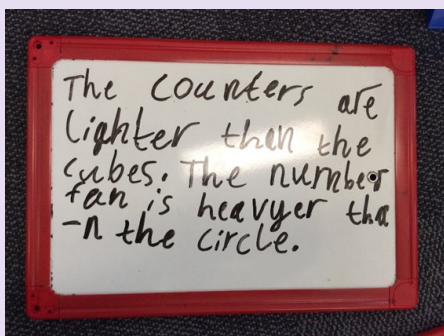 The counters are
lighter than the
cubes. The number
fan is heavyer tha
-n the circle.